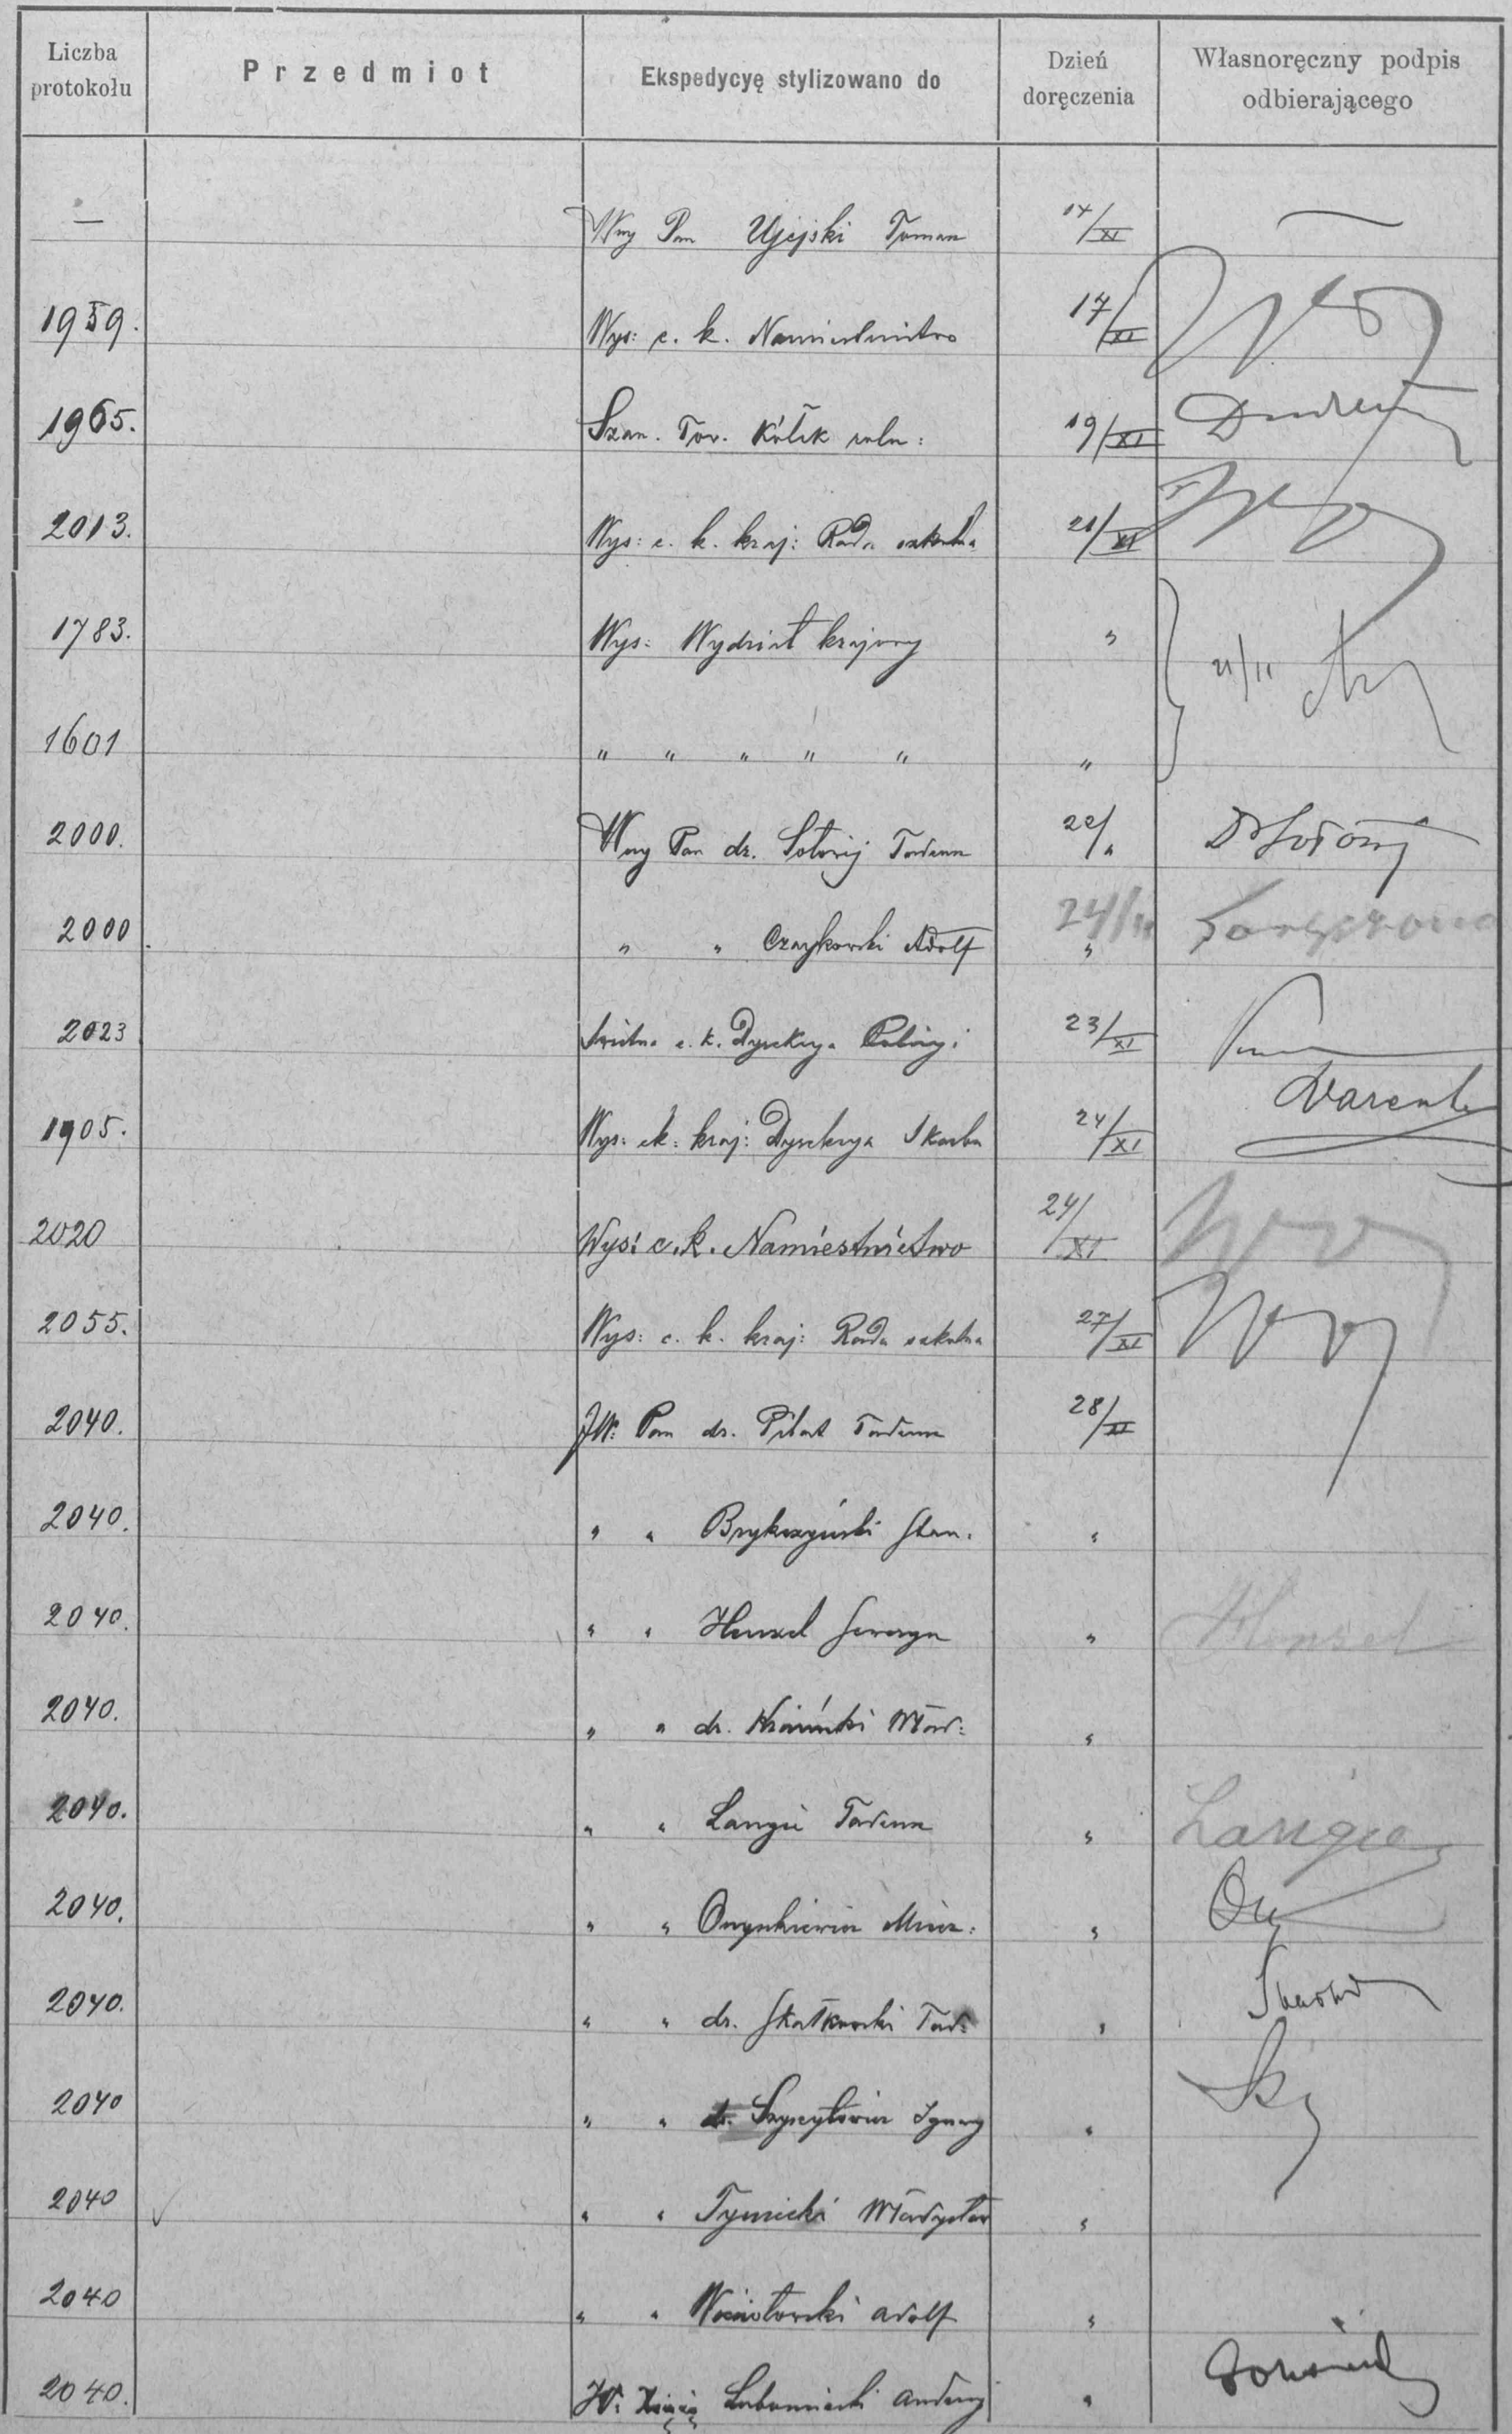 Liczba protokołu Przedmiot Ekspedycyę stylizowano do Dzień doręczenia Własnoręczny podpis odbierającego
— Wny Pan Ujejski Roman 14/XI —
1959. Wys: c. k. Namiestnictwo 17/XI
1965. Szan. Tow. Kółek roln: 19/XI
2013. Wys: c. k. kraj: Rada szkolna 21/XI
1783. Wys: Wydział krajowy " 21/11
1601 " " " " " "
2000. Wny Pan dr. Sołowij Tadeusz 22/" Dr Sołowij
2000 " " Czaykowski Adolf 24/11 "
2023 Świetna c. k. Dyrekcya Policyi 23/XI
1905. Wys: ck. kraj: Dyrekcya Skarbu 24/XI
2020 Wys: c. k. Namiestnictwo 24/XI
2055. Wys: c. k. kraj: Rada szkolna 27/XI
2040. JW: Pan dr. Pilat Tadeusz 28/XI
2040. " " Brykczyński Stan. "
2040. " " Henzel Seweryn " Henzel
2040. " " dr. Kraiński Wład: "
2040. " " Langie Tadeusz " Langie
2040. " " Onyszkiewicz Miecz: "
2040. " " dr. Skałkowski Tad: "
2040 " " Szyszyłowicz Ignacy "
2040 " " Tyniecki Władysław "
2040 " " Wiesiołowski Adolf "
2040. JO. Książę Lubomirski Andrzej "